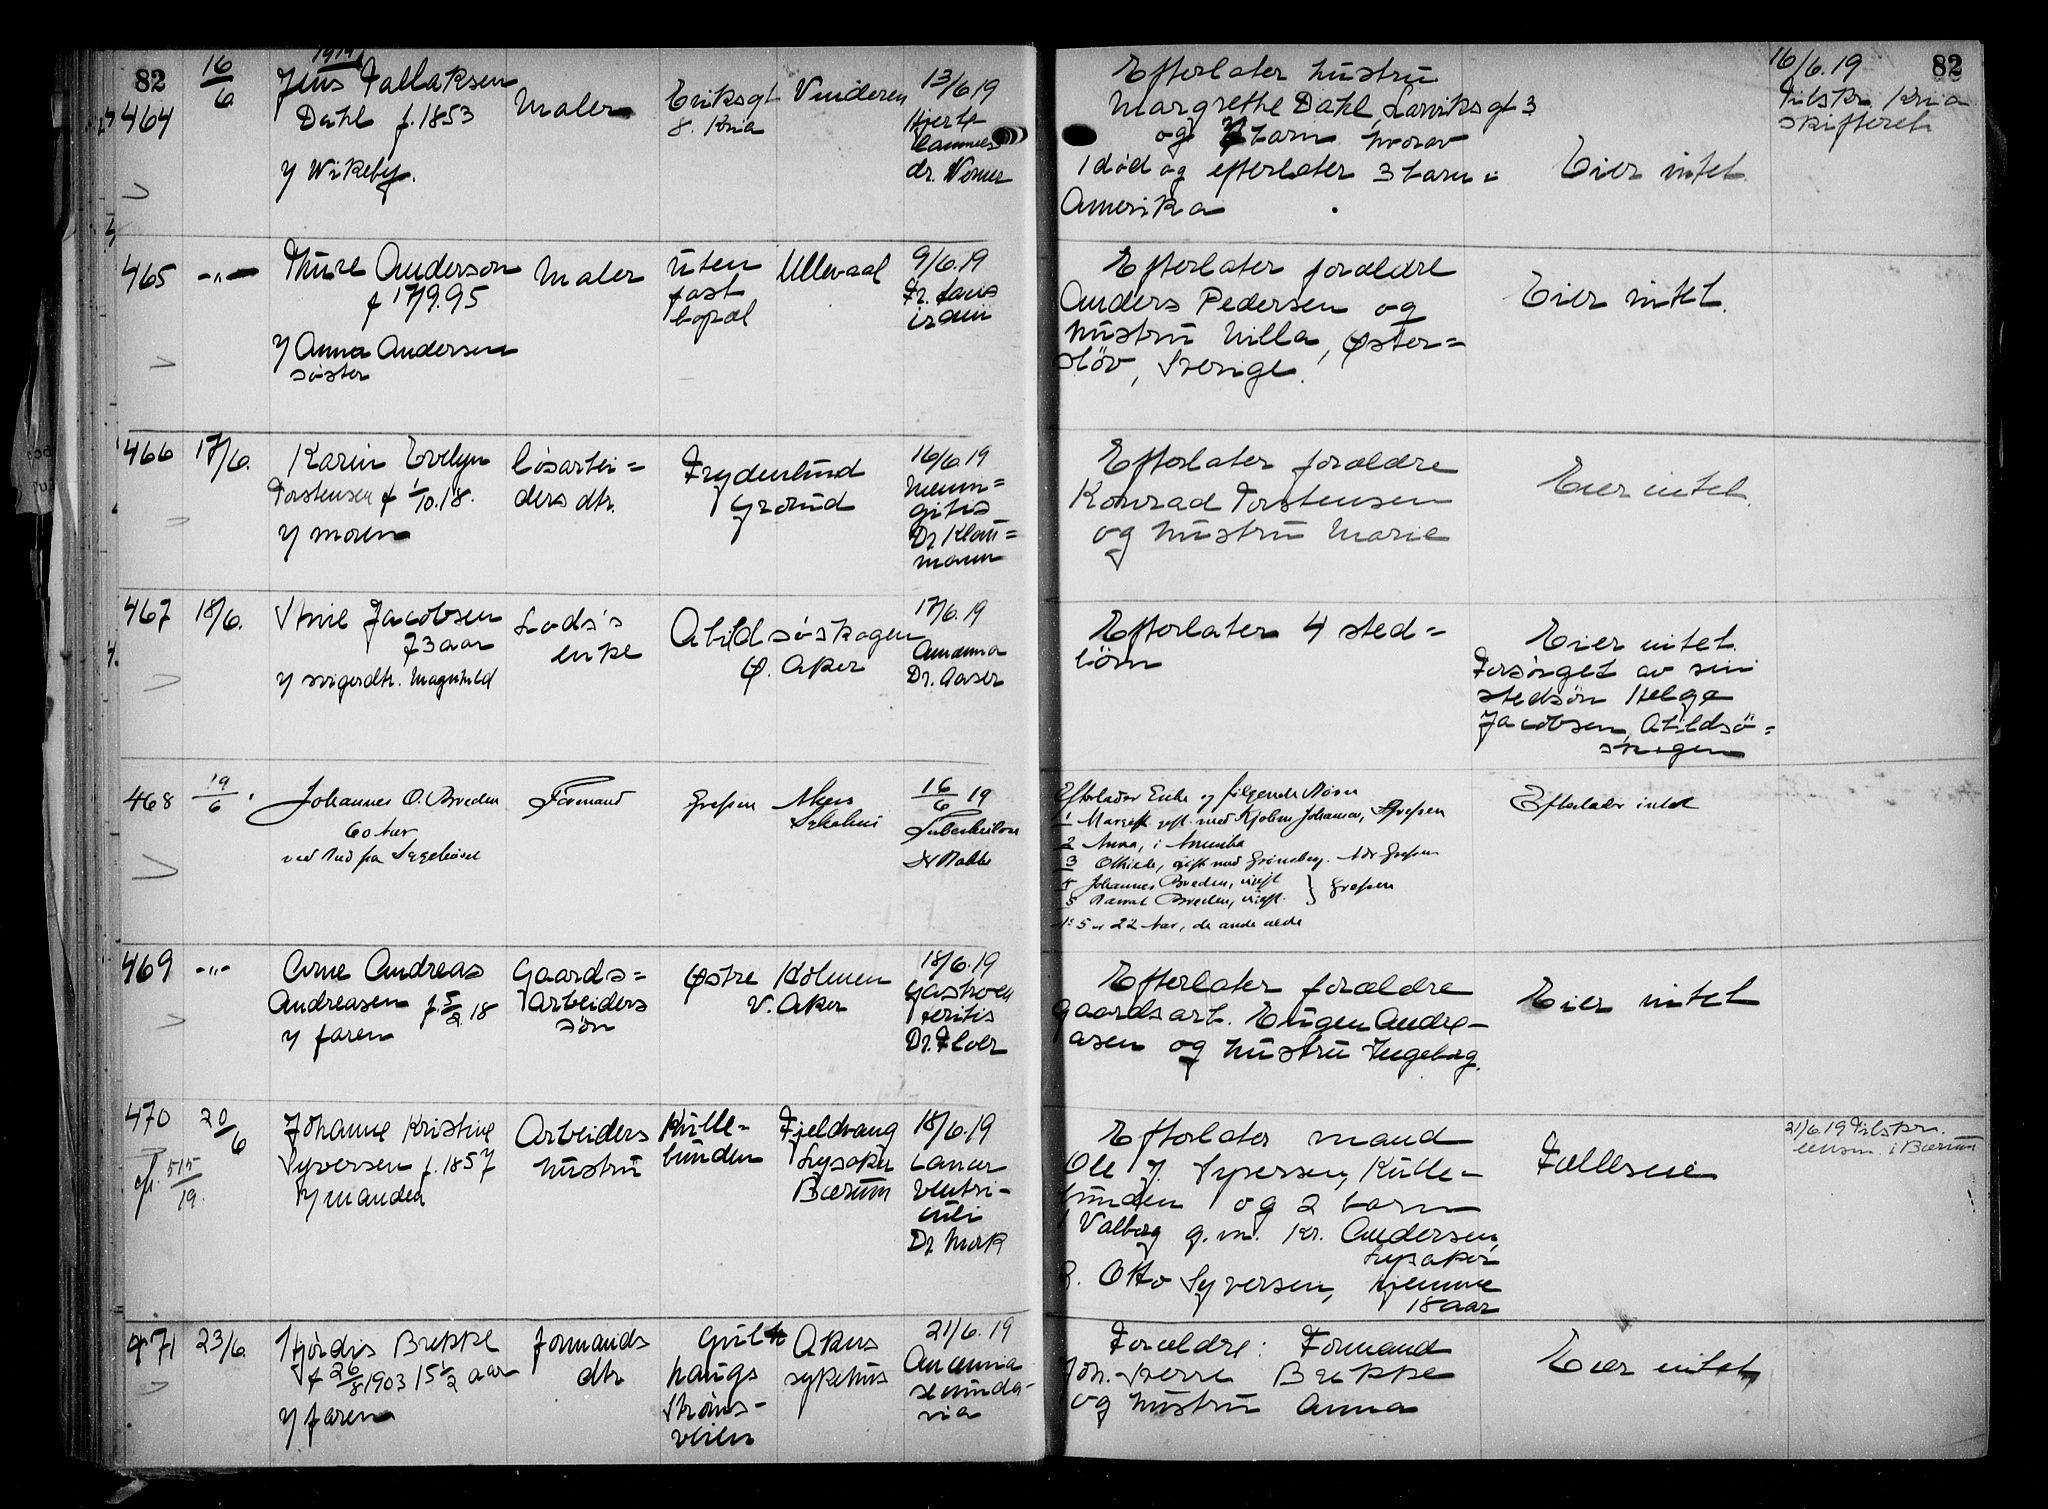 82
1919
464
16/6
Jens Tallaksen
Dahl f. 1853
Maler
Eriksgt
8. Kria
Vinderen
13/6.19
Hjerte
dr. Verner
Efterlater hustru
Margrethe Dahl, Larviksgt 3
og 7 barn hvorav
1 død og efterlater 3 barn i
Amerika
Eier intet.
16/6.19
Tilskr. Kria
skifteret
82
465
-"-
Thure Anderson
f 17/9.95
y Anna Andersen
søster
Maler
uten
fast
bopæl
Ullevaal
9/6.19
Efterlater forældre
Anders Pedersen og
hustru Nilla, Øster=
slöv, Sverige.
Eier intet.
466
17/6.
Karin Evelyn
Torstensen f 1/10.18.
y moren
løsarbei=
ders dtr.
Frydenlund
Grorud
16/6.19
menin=
gitis
Dr. Klau=
mann
Efterlater forældre
Konrad Torstensen
og hustru Marie
Eier intet.
467
18/6.
Jacobsen
73 aar
y svigerdtr. Magnhild
Lods's
enke
Abildsøskogen
Ø. Aker
17/6.19
Dr. Aaser
Efterlater 4 sted=
börn
Eier intet.
Forsörget av sin
stedsön Helge
Jacobsen, Abildsö=
skogen
468
19/6
Johannes O. Breden
60 Aar
Formand
Grefsen
Akers
Sykehus
16/6 19
Tuberkulose
Efterlader Enke og følgende Børn
1 Margit gift med Johansen, Grefsen
2 Anna, i Amerika
3 gift med Grönsberg. Adr Grefsen
4 Johannes Breden, ugift
5 Breden, ugift. } Grefsen
No 5 er 22 Aar, de andre ældre
Efterlader intet
469
-"-
Arne Andreas
Andreasen f. 5/2.18
y faren
Gaards=
arbeiders
søn
Østre Holmen
V. Aker
18/6.19
Gastroen
teritis
Dr. Floer
Efterlater forældre
gaardsarb. Eugen Andre-
asen og hustru Ingeborg.
Eier intet
470
515/19.
20/6
Johanne Kristine
Syversen f. 1857
y manden
Arbeiders
hustru
Kulle=
bunden
Fjeldvang
Lysaker
Bærum
18/6.19
Cancer
ventri-
culi
Dr. Mork
Efterlater mand
Ole J. Syversen, Kulle-
bunden og 2 barn
1 Valborg g.m. Kr. Andersen,
Lysaker
2. Otto Syversen, hjemme
18 aar
Fælleseie
21/6 19 Tilskr.
lensm. i Bærum
471
23/6.
Hjördis Brekke
f 26/8 1903 15 1/2 aar
y faren
Formands
dtr
Gulb
haugs
Ströms-
veien
Akers
sykehus
21/6.19
Anæmia
secunda-
ria
Forældre: Formand
Joh. Sverre Brekke
og hustru Anna
Eier intet